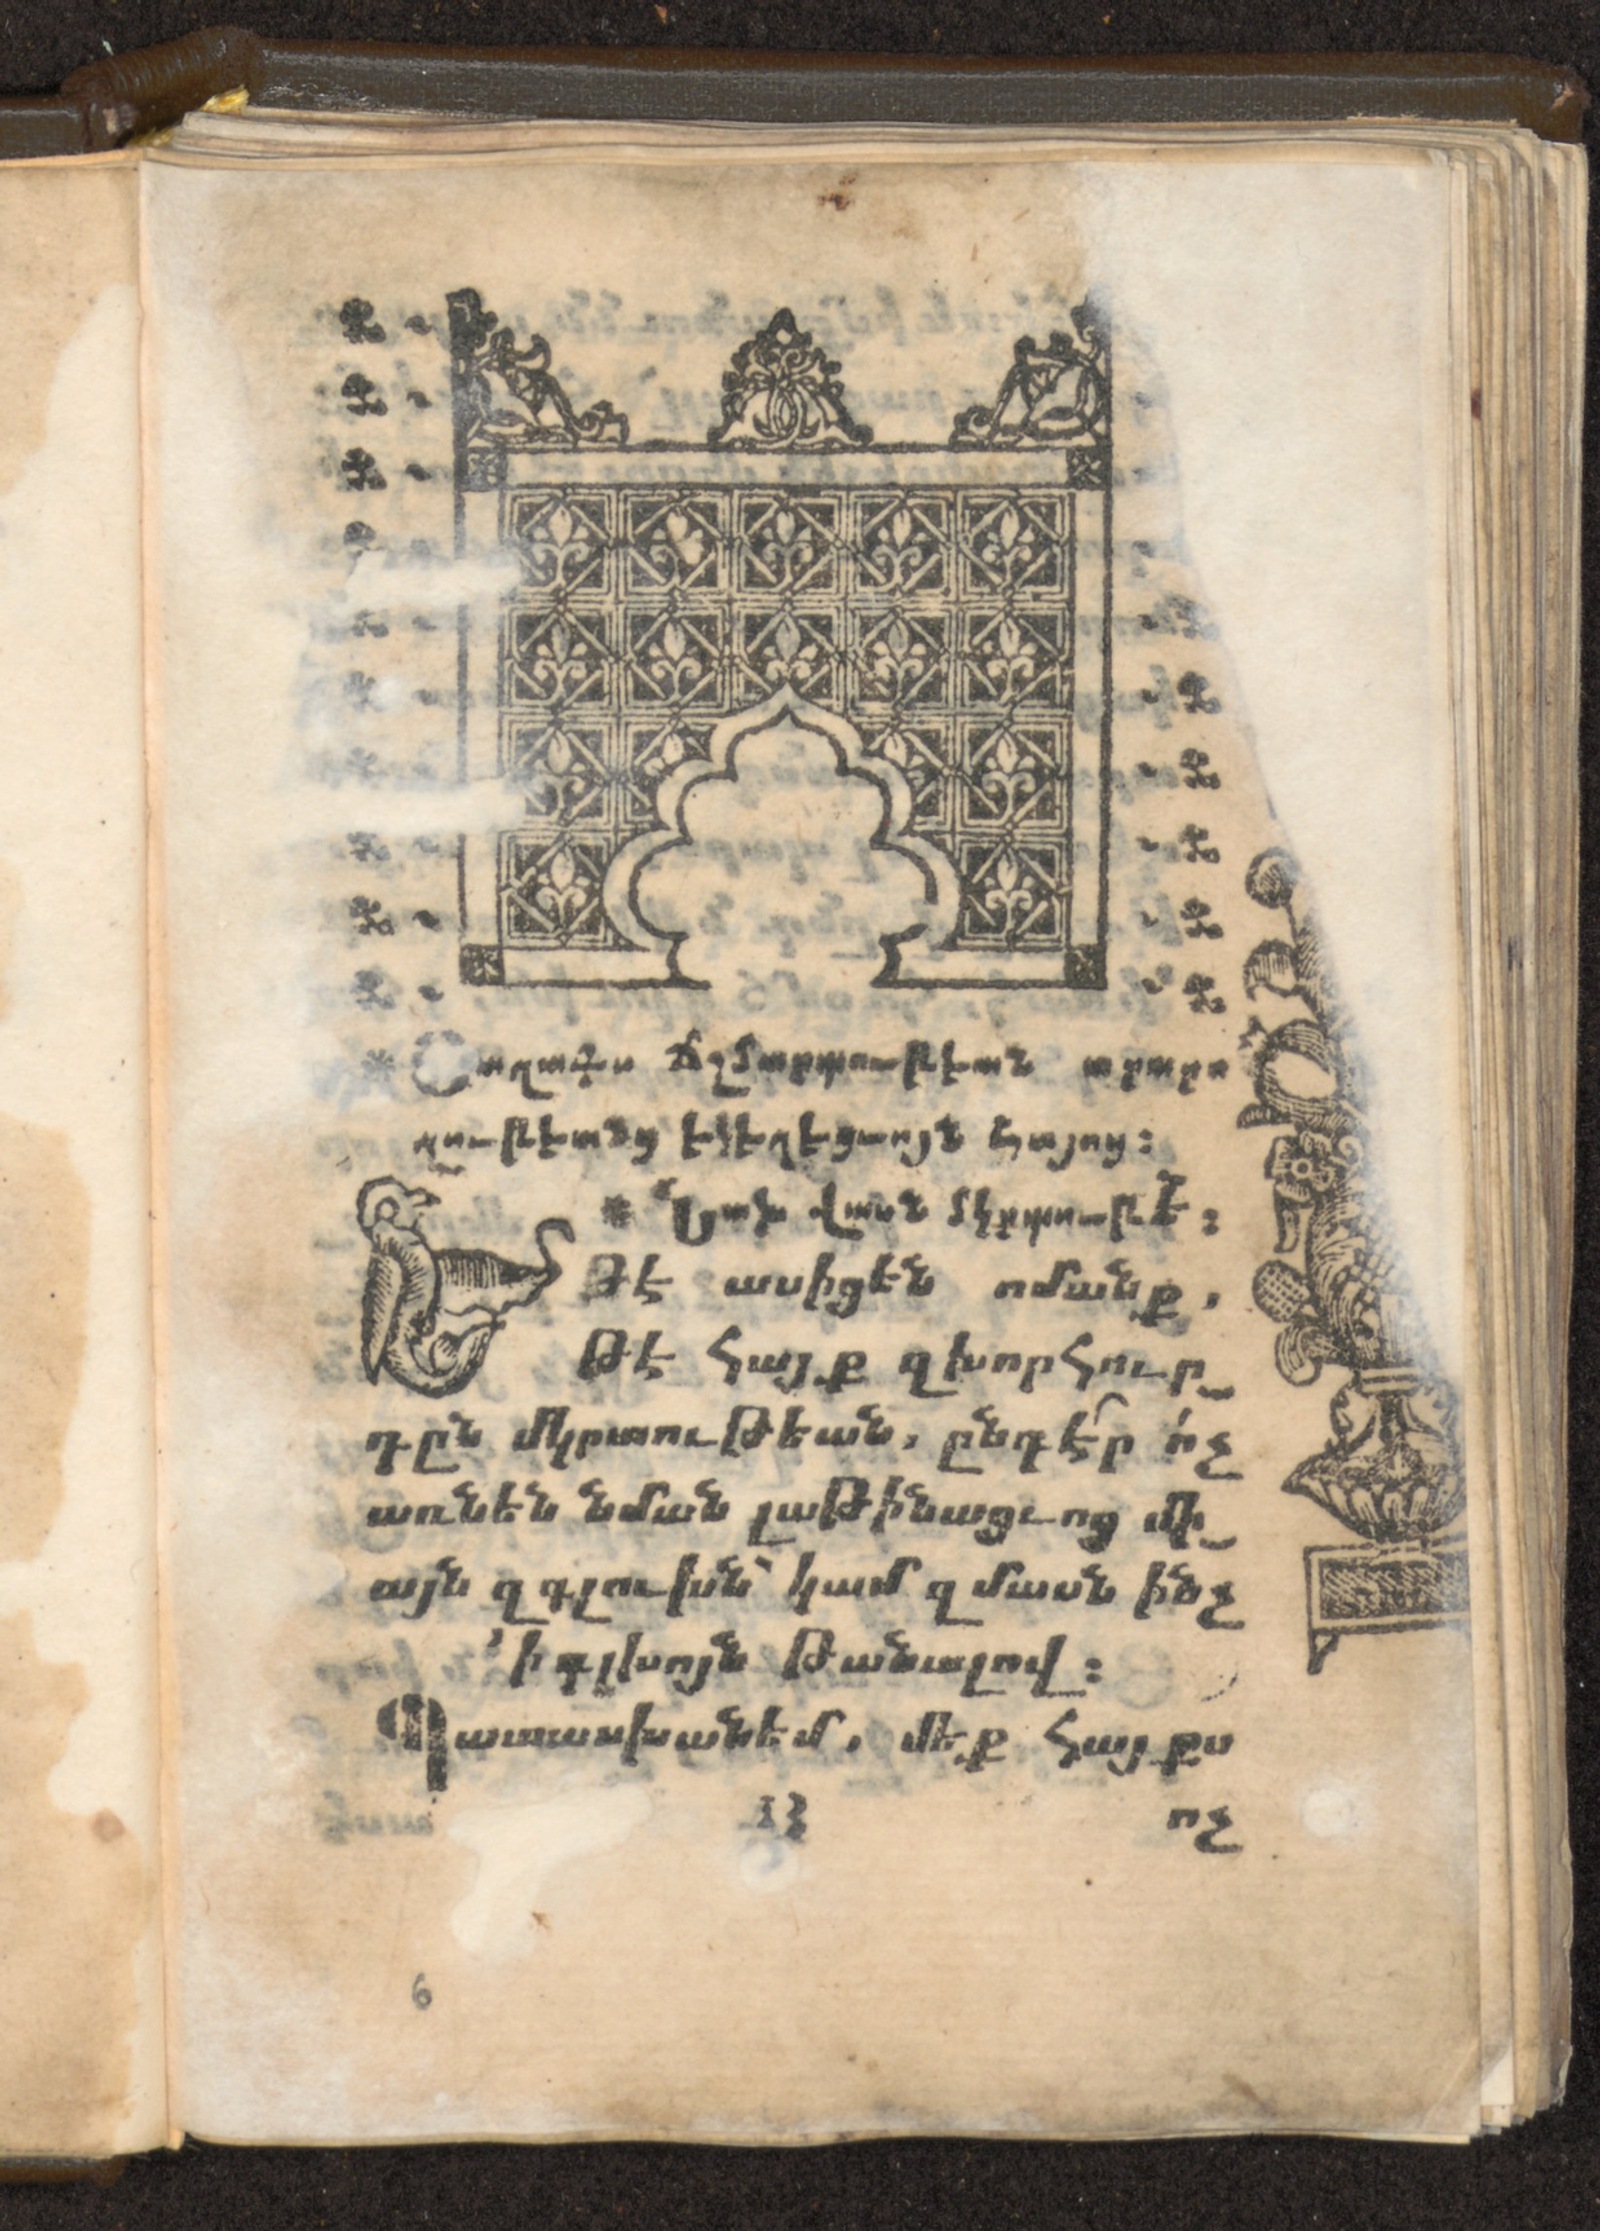 * Յաղագս ճշմարտութեան արարո
ղութեանց եկեղեցւոյն հայոց։
* Նախ վասն մկրտութե՛։
Թէ ասիցեն ոմանք,
թէ հայք զխորհուր֊
դըն մկրտութեան, ընդէ՞ր ո՛չ
առնեն նման լաթինացւոց մի֊
այն զգլուխն՝ կամ զմասն ինչ
՚ի գլխոյն թանալով։
Պատասխանեմ, մեք հայքս
13 ոչ
6